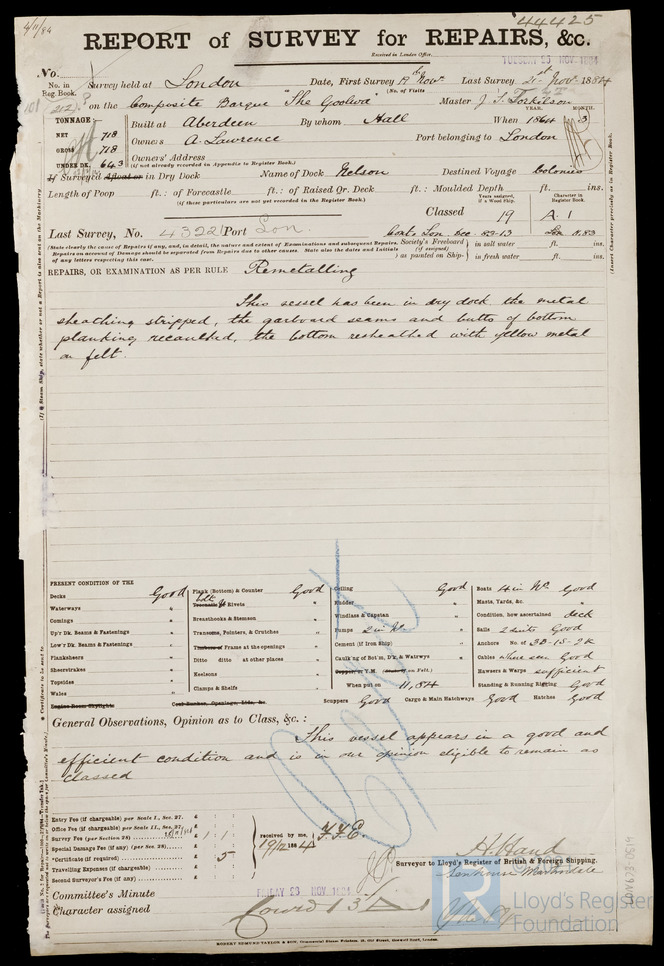 4/11/84
44425
REPORT of SURVEY for REPAIRS, &c.
Received in London Office,
TUESDAY 25 NOV. 1884
No.
No. in Reg Book.
Survey held at London Date, First Survey 19th Novr Last Survey 21st Novr 1884
(No. of Visits
on the Composite Barque "The Goolwa" Master J. T. Torkilson
TONNAGE
NET 718
GROSS 718
UNDER DK. 643
Built at Aberdeen By whom Hall When 1864 3
YEAR. MONTH.
Owners A. Lawrence Port belonging to London
Owners' Address
(if not already recorded in Appendix to Register Book.)
If Survey'd Afloat or in Dry Dock Name of Dock Nelson Destined Voyage Colonies
Length of Poop ft.: of Forecastle ft.: of Raised Qr. Deck ft.: Moulded Depth ft. ins.
(if these particulars are not yet recorded in the Register Book.)
Years assigned, if a Wood Ship. Character in Register Book.
Classed 19 A.1
Last Survey, No. 43221 Port Lon.
(State clearly the cause of Repairs if any, and, in detail, the nature and extent of Examinations and subsequent Repairs.
Repairs on account of Damage should be separated from Repairs due to other causes. State also the dates and Initials
of any letters respecting this case.
Society's Freeboard (if assigned) as painted on Ship- in salt water ft. ins.
in fresh water ft. ins.
REPAIRS, OR EXAMINATION AS PER RULE Remetalling
This vessel has been in dry dock, the metal
sheathing stripped, the garboard seams and butts of bottom
planking recaulked, the bottom resheathed with yellow metal
on felt.
PRESENT CONDITION OF THE
Decks Good
Waterways "
Comings "
Up'r Dk. Beams & Fastenings "
Low'r Dk. Beams & Fastenings "
Planksheers "
Sheerstrakes "
Topsides "
Wales "
Engine Room Skylights
Plank (Bottom) & Counter Good
Treenails or Rivets "
Breasthooks & Stemson "
Transoms, Pointers, & Crutches "
Timbers or Frames at the openings "
Ditto ditto at other places "
Keelsons "
Clamps & Shelfs "
Ceiling Good
Rudder "
Windlass & Capstan "
Pumps 2 in No. "
Cement (if Iron Ship) "
Caulk'ng of Bot'm, D'k, & Watrwys "
Copper, or Y.M. (on Felt.) "
When put on 11,84
Scuppers Good Cargo & Main Hatchways Good Hatches Good
Boats 4 in No. Good
Masts, Yards, &c. "
Condition, how ascertained deck
Sails 2 suits Good
Anchors No. of 3B-1S-2K
Cables where seen Good
Hawsers & Warps sufficient
Standing & Running Rigging Good
General Observations, Opinion as to Class, &c. :
This vessel appears in a good and
efficient condition and is in our opinion eligible to remain as
classed
Entry Fee (if chargeable) per Scale I., Sec. 27. £ : :
Office Fee (if chargeable) per Scale II., Sec. 27. £ : :
Survey Fee (per Section 28) £ 1 : 1 :
Special Damage Fee (if any) (per Sec. 28) £ : :
*Certificate (if required) £ : 5 :
Travelling Expenses (if chargeable) £ : :
Second Surveyor's Fee (if any) £ : :
received by me,
19/12 1884
H. Hand
Surveyor to Lloyd's Register of British & Foreign Shipping.
Committee's Minute FRIDAY 28 NOV. 1884
Character assigned
ROBERT EDMUND TAYLOR & SON, Commercial Steam Printers, 19, Old Street, Goswell Road, London.
Lloyd's Register
Foundation